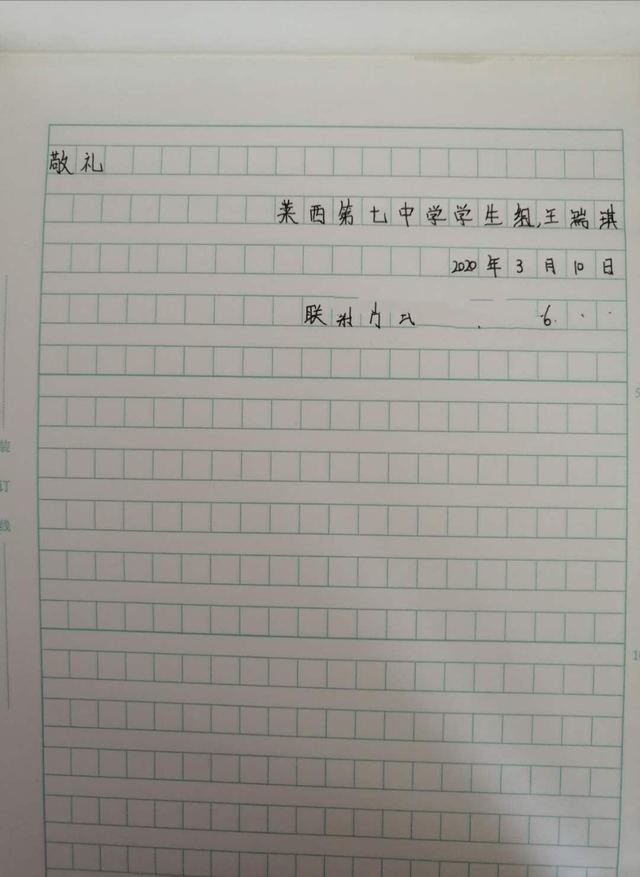 敬礼
莱西第七中学学生组,王瑞琪
2020年3月10日
联
6
装
订
线